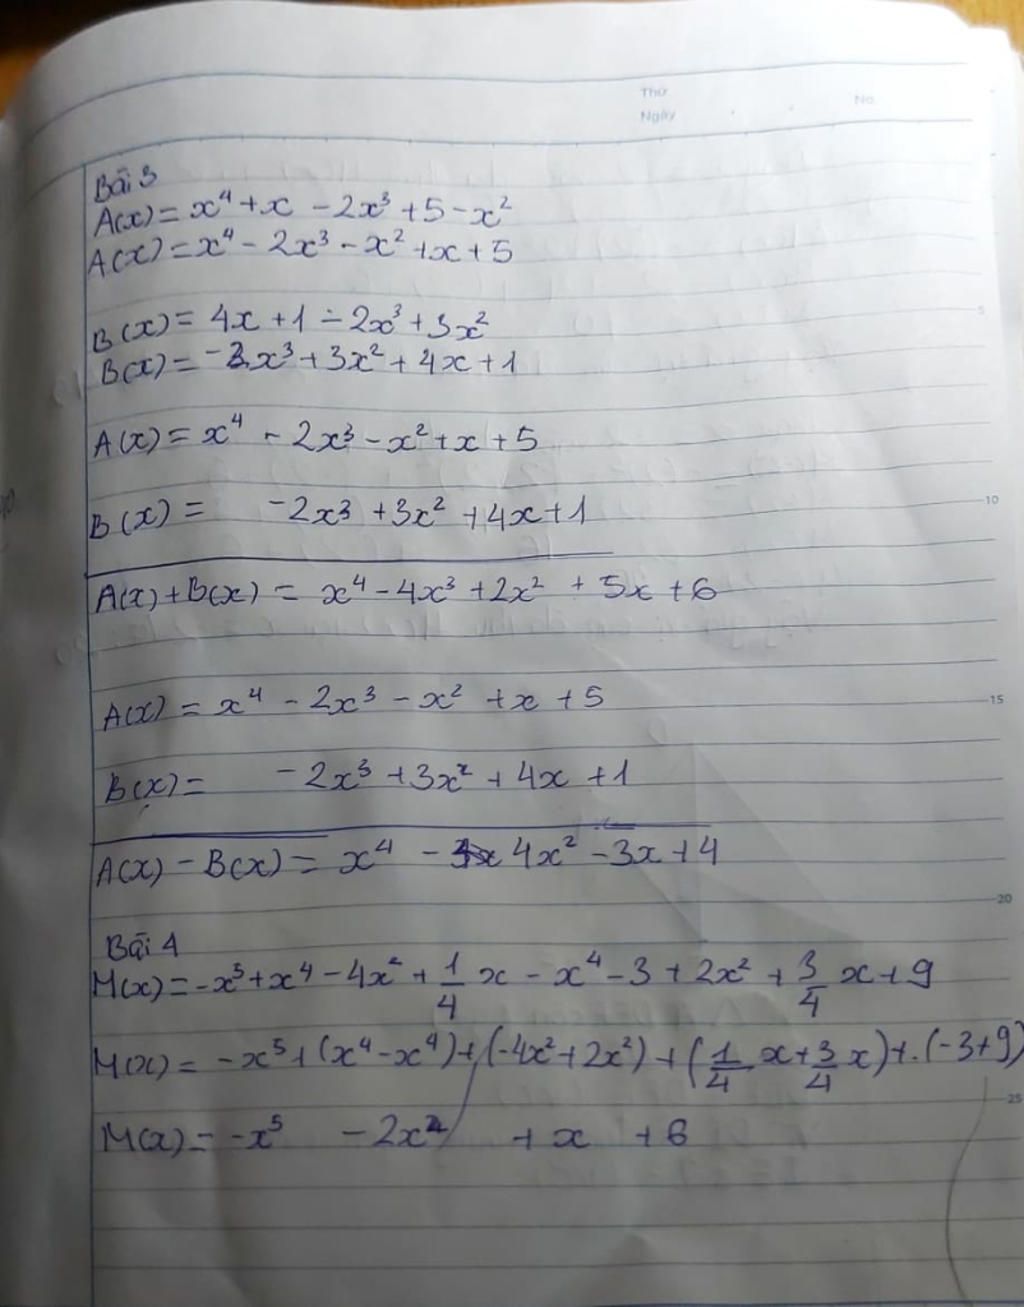 Thứ
Ngày
No.
Bài 3
A(x) = x⁴ + x - 2x³ + 5 - x²
A(x) = x⁴ - 2x³ - x² + x + 5
5
B(x) = 4x + 1 - 2x³ + 3x²
B(x) = -2x³ + 3x² + 4x + 1
A(x) = x⁴ - 2x³ - x² + x + 5
10
B(x) = -2x³ + 3x² + 4x + 1
A(x) + B(x) = x⁴ - 4x³ + 2x² + 5x + 6
A(x) = x⁴ - 2x³ - x² + x + 5
15
B(x) = -2x³ + 3x² + 4x + 1
A(x) - B(x) = x⁴ - 4x² - 3x + 4
20
Bài 4
M(x) = -x⁵ + x⁴ - 4x² + 1/4 x - x⁴ - 3 + 2x² + 3/4 x + 9
M(x) = -x⁵ + (x⁴ - x⁴) + (-4x² + 2x²) + (1/4 x + 3/4 x) + .(-3 + 9)
25
M(x) = -x⁵ - 2x² + x + 6